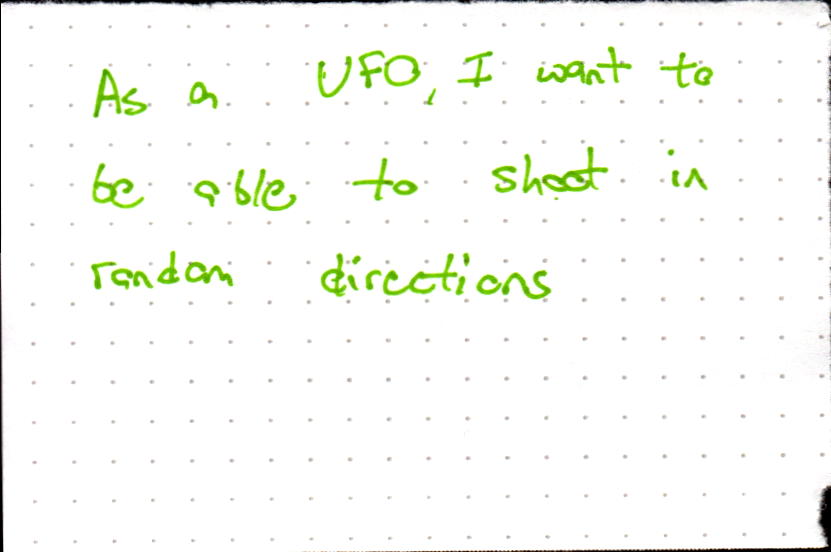 As a UFO, I want to
be able to shoot in
random directions